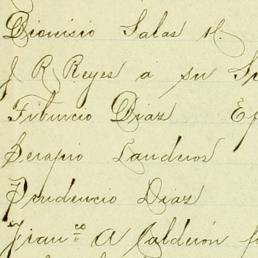 Dionisio Salas H.
J R Reyes a su
Tiburcio Diaz
Serapio Landeros
Prudencio Diaz
Fran.co A Calderón